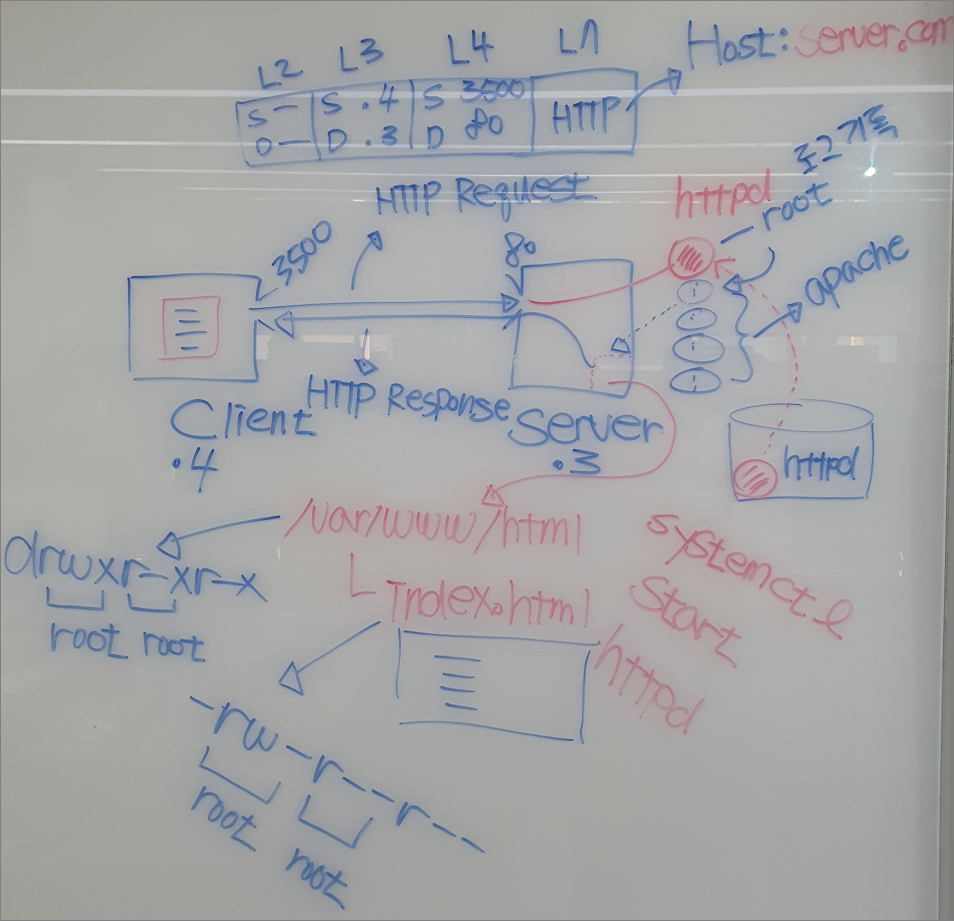 L2 L3 L4 L7
Host: server.com
S — S .4 S 3500
D — D .3 D 80
HTTP
로그기록
HTTP Request
httpd
root
3500
80
apache
HTTP Response
Client
.4
Server
.3
httpd
/var/www/html
drwxr-xr-x
root root
index.html
systemctl
start
httpd
-rw-r--r--
root
root